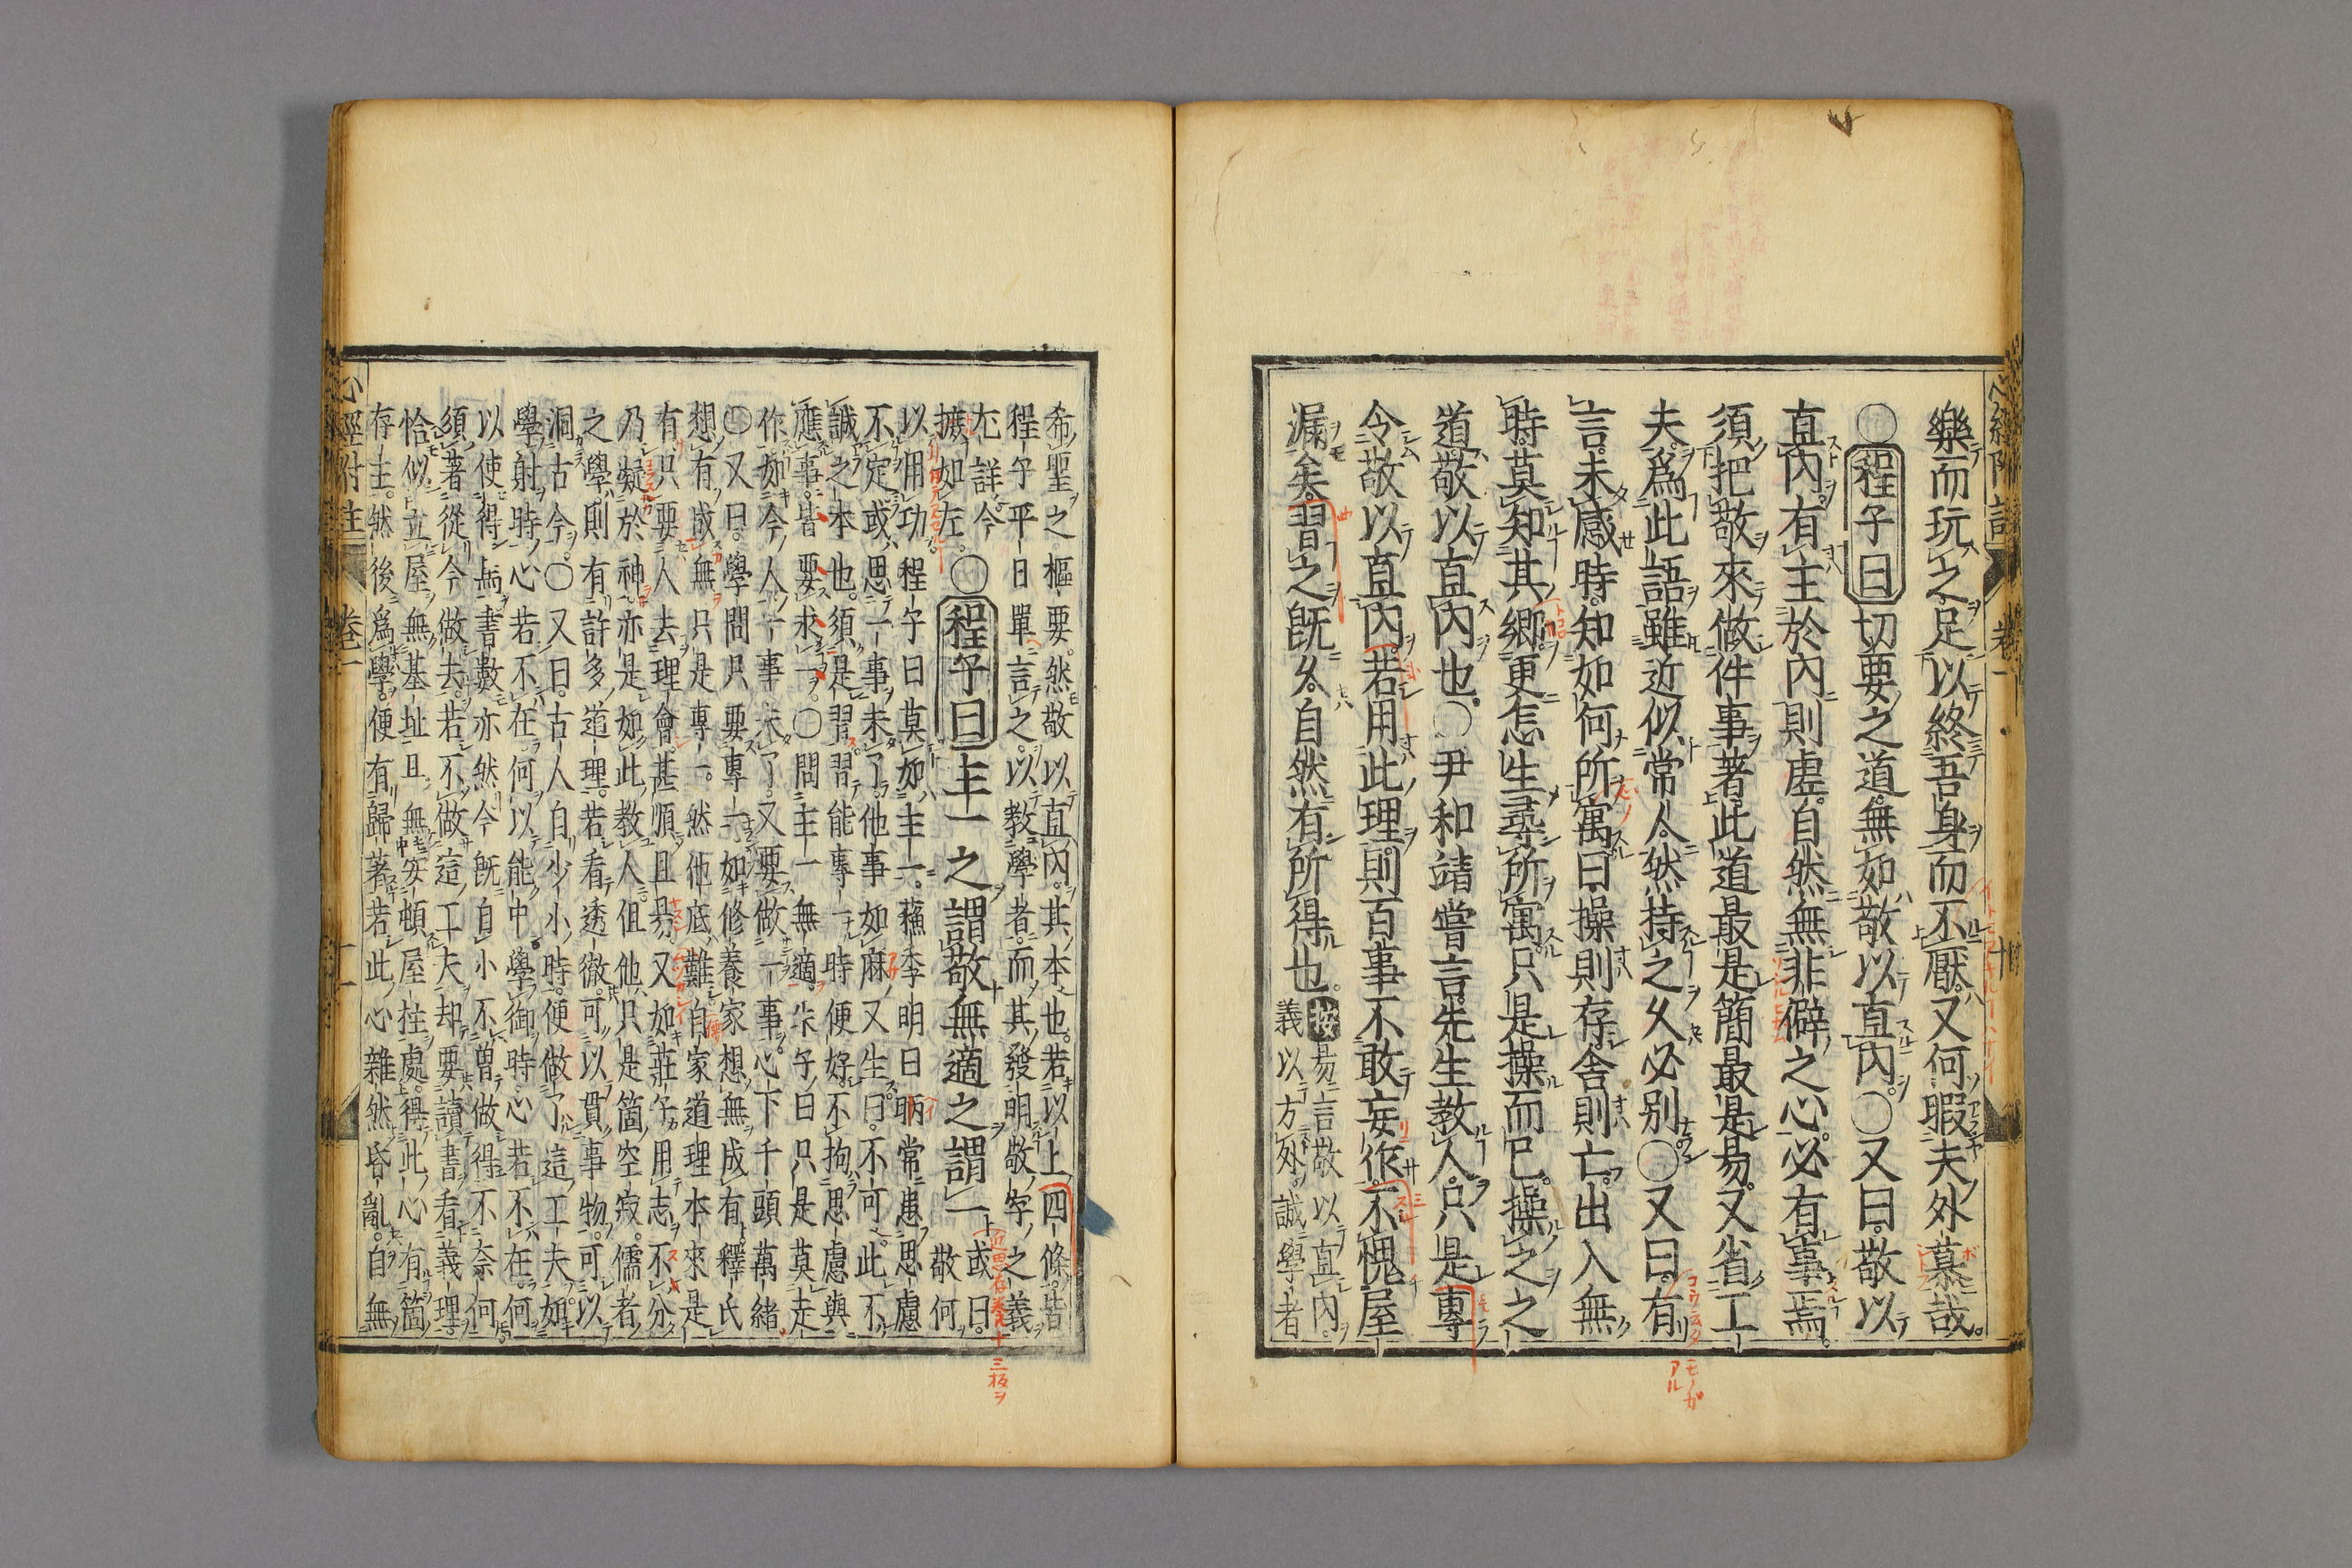 樂而玩之足以終吾身而不厭又何暇夫外慕哉
○程子曰切要之道無如敬以直內○又曰敬以
直內有主於內則虛自然無非僻之心必有事焉
須把敬來做件事著此道最是簡最是易又省工
夫爲此語雖近似常人然持之久必別○又曰有
言未感時知如何所寓曰操則存舍則亡出入無
時莫知其鄉更怎生尋所寓只是操而已操之之
道敬以直內也○尹和靖嘗言先生教人只是專
令敬以直內若用此理則百事不敢妄作不愧屋
漏矣習之旣久自然有所得也
按易言敬以直內
義以方外誠學者
希聖之樞要然敬以直內其本也若以上四條皆
程子平日單言之以教學者而其發明敬字之義
尤詳今
摭如左
○程子曰主一之謂敬無適之謂一
或曰敬何
以用功程子曰莫如主一蘓季明曰昞常患思慮
不定或思一事未了他事如麻又生曰不可此不
誠之本也須是習習能專一時便好不拘思慮與
應事皆要求一○問主一無適朱子曰只是莫走
作如今人一事未了又要做一事心下千頭萬緒
○又曰學問只要專一如修養家想無成有釋氏
想有成無只是專一然他底難自家道理本來是
有只要人去理會甚順且易又如莊子用志不分
乃凝於神亦是如此教人但他只是箇空寂儒者
之學則有許多道理若看透徹可以貫事物可以
洞古今○又曰古人自少小時便做了這工夫如
學射時心若不在何以能中學御時心若不在何
以使得馬書數亦然今旣自小不曾做得不奈何
須著從今做去若不做這工夫却要讀書看義理
恰似立屋無基址且無安頓屋柱處得此心有箇
存主然後爲學便有歸著若此心雜然昏亂自無
心經附註
卷一
十
心經附註
卷一
十一
近思存養九十三板ヲ